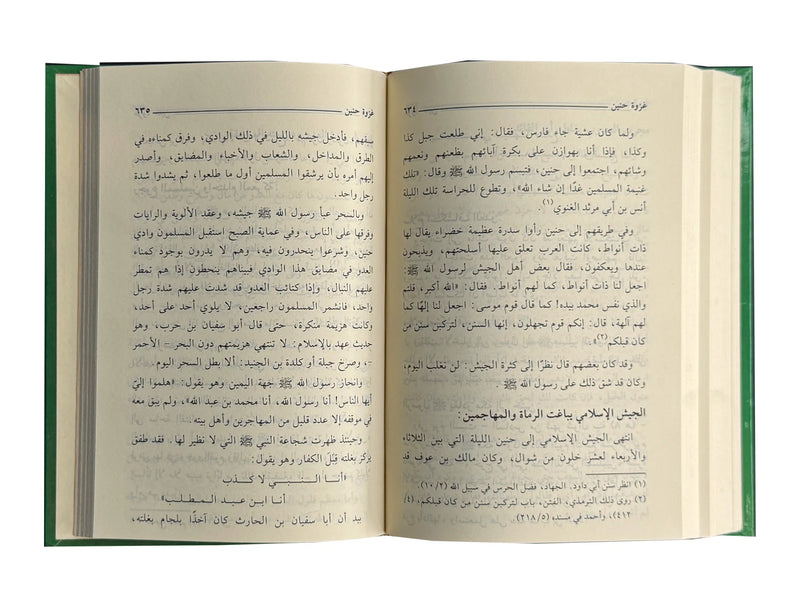 غزوة حنين ٦٣٤
ولما كان عشية جاء فارس، فقال: إني طلعت جبل كذا
وكذا، فإذا أنا بهوازن على بكرة آبائهم بظعنهم ونعمهم
وشائهم، اجتمعوا إلى حنين، فتبسم رسول الله ﷺ وقال: «تلك
غنيمة المسلمين غدًا إن شاء الله»، وتطوع للحراسة تلك الليلة
أنس بن أبي مرثد الغنوي(١).
وفي طريقهم إلى حنين رأوا سدرة عظيمة خضراء يقال لها
ذات أنواط، كانت العرب تعلق عليها أسلحتهم، ويذبحون
عندها ويعكفون، فقال بعض أهل الجيش لرسول الله ﷺ:
اجعل لنا ذات أنواط، كما لهم أنواط. فقال: «الله أكبر، قلتم
والذي نفس محمد بيده! كما قال قوم موسى: اجعل لنا إلهًا كما
لهم آلهة، قال: إنكم قوم تجهلون، إنها السنن، لتركبن سنن من
كان قبلكم(٢)».
وقد كان بعضهم قال نظرًا إلى كثرة الجيش: لن نغلب اليوم،
وكان قد شق ذلك على رسول الله ﷺ .
الجيش الإسلامي يباغت الرماة والمهاجمين:
انتهى الجيش الإسلامي إلى حنين الليلة التي بين الثلاثاء
والأربعاء لعشر خلون من شوال، وكان مالك بن عوف قد
(١) انظر سنن أبي داود. الجهاد، فضل الحرس في سبيل الله (٢/ ١٠).
(٢) روى ذلك الترمذي، الفتن، باب لتركبن سنن من كان قبلكم، (٤/
٤١٢)، وأحمد في مسنده (٥/ ٢١٨).
غزوة حنين ٦٣٥
سبقهم، فأدخل جيشه بالليل في ذلك الوادي، وفرق كمناءه في
الطرق والمداخل، والشعاب والأخباء والمضايق، وأصدر
إليهم أمره بأن يرشقوا المسلمين أول ما طلعوا، ثم يشدوا شدة
رجل واحد.
وبالسحر عبأ رسول الله ﷺ جيشه، وعقد الألوية والرايات
وفرقها على الناس، وفي عماية الصبح استقبل المسلمون وادي
حنين، وشرعوا ينحدرون فيه، وهم لا يدرون بوجود كمناء
العدو في مضايق هذا الوادي فبيناهم ينحطون إذا هم تمطر
عليهم النبال، وإذا كتائب العدو قد شدت عليهم شدة رجل
واحد، فانشمر المسلمون راجعين، لا يلوي أحد على أحد،
وكانت هزيمة منكرة، حتى قال أبو سفيان بن حرب، وهو
حديث عهد بالإسلام: لا تنتهي هزيمتهم دون البحر – الأحمر
–، وصرخ جبلة أو كلدة بن الجنيد: ألا بطل السحر اليوم.
وانحاز رسول الله ﷺ جهة اليمين وهو يقول: «هلموا إليّ
أيها الناس! أنا رسول الله، أنا محمد بن عبد الله»، ولم يبق معه
في موقفه إلا عدد قليل من المهاجرين وأهل بيته.
وحينئذ ظهرت شجاعة النبي ﷺ التي لا نظير لها. فقد طفق
يركز بغلته قبل الكفار وهو يقول:
«أنا النبي لا كذب
أنا ابن عبد المطلب»
بيد أن أبا سفيان بن الحارث كان آخذًا بلجام بغلته،